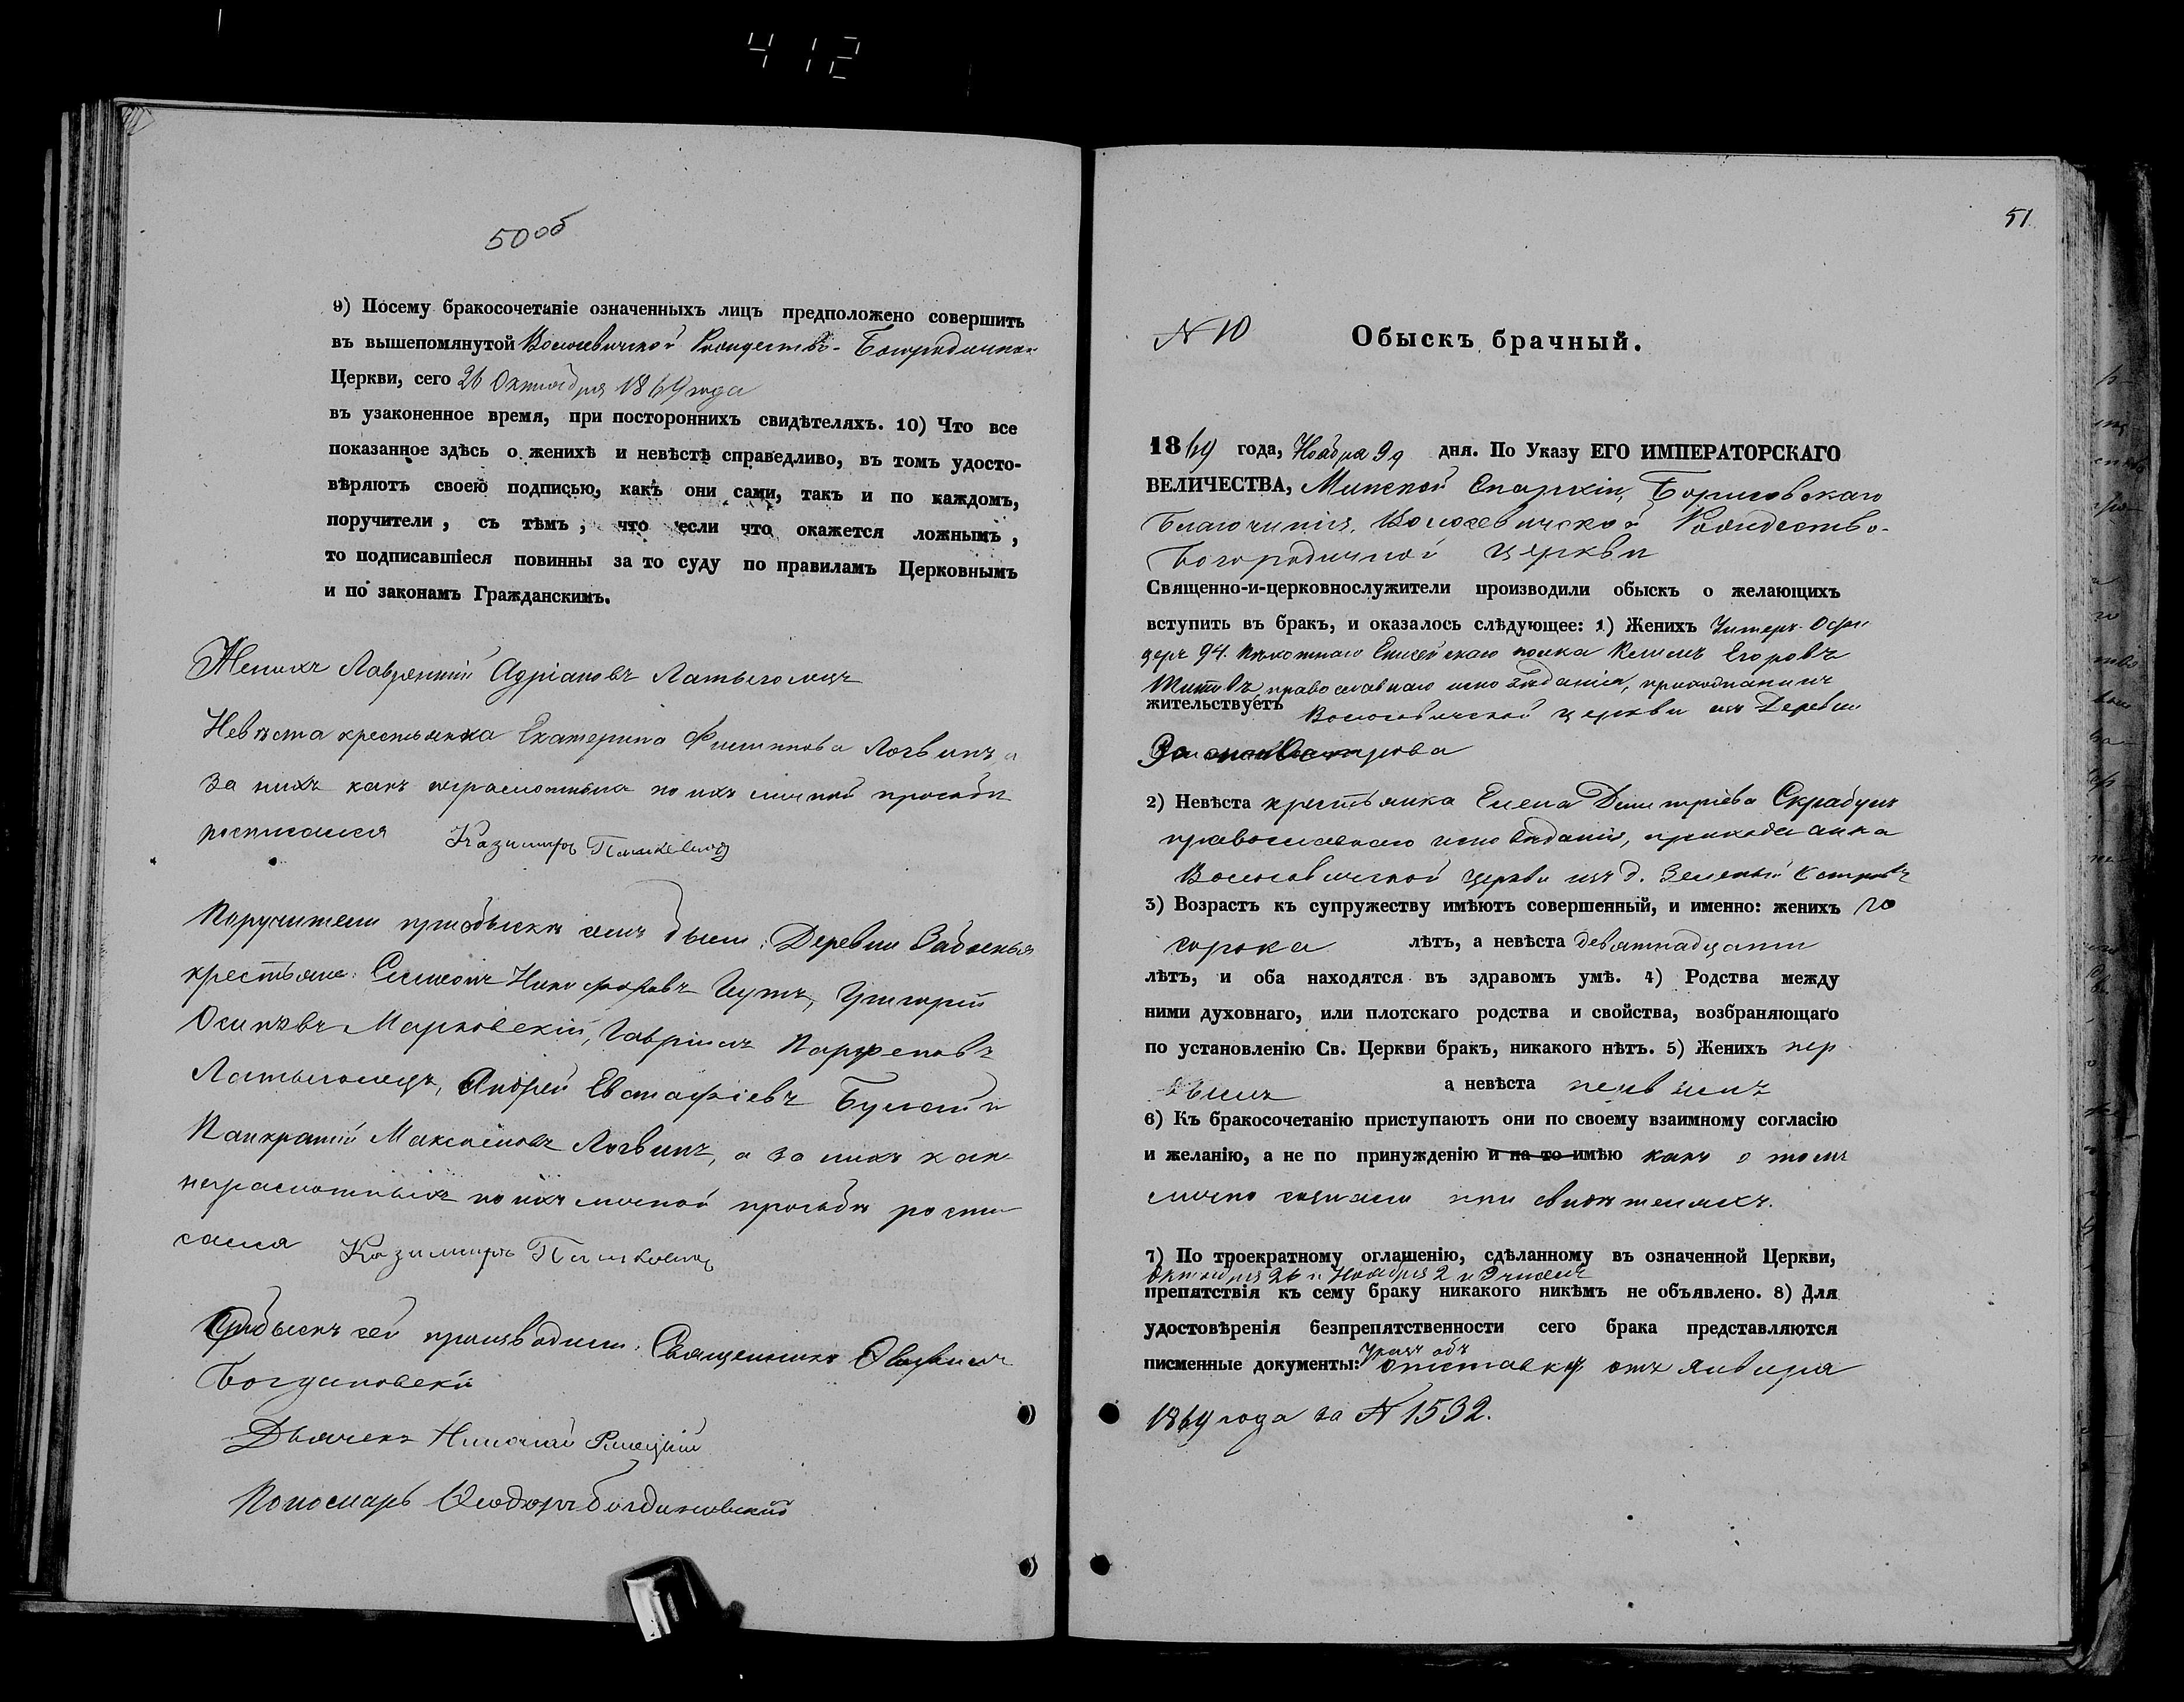 412
50 об
9) Посему бракосочетаніе означенныхъ лицъ предположено совершить
въ вышепомянутой Волосевичской Рождество-Богородичной
Церкви, сего 26 Октября 1869 года
въ узаконенное время, при постороннихъ свидѣтеляхъ. 10) Что все
показанное здѣсь о женихѣ и невѣстѣ справедливо, въ томъ удосто-
вѣряютъ своею подписью, какъ они сами, такъ и по каждомъ,
поручители, съ тѣмъ, что если что окажется ложнымъ,
то подписавшіеся повинны за то суду по правиламъ Церковнымъ
и по законамъ Гражданскимъ.
Женихъ Лаврентій Адріановъ Латыголецъ
Невѣста крестьянка Екатерина Филиппова Логвинъ а
за нихъ какъ неграмотныхъ по ихъ личной просьбѣ
росписался Казимиръ
Поручители при обыскѣ семъ были: Деревни
крестьяне: Симеонъ Никифоровъ Григорій
Осиповъ Марковскій, Гавріилъ Парфеновъ
Латыголецъ, Андрей Евстафіевъ и
Панкратій Максимовъ Логвинъ, а за нихъ какъ
неграмотныхъ по ихъ личной просьбѣ роспи
сался Казимиръ
Обыскъ сей производили: Священникъ
Богдановскій
Дьячекъ Николай
Пономарь Ѳеодоръ Богдановскій
51
N 10
Обыскъ брачный.
1869 года, Ноября 9д дня. По Указу ЕГО ИМПЕРАТОРСКАГО
ВЕЛИЧЕСТВА, Минской Епархіи, Борисовскаго
Благочинія, Волосевичской Рождество-
Богородичной церкви
Священно-и-церковнослужители производили обыскъ о желающихъ
вступить въ бракъ, и оказалось слѣдующее: 1) Женихъ Унтеръ-Офи
церъ 94. Пѣхотнаго Енисейскаго полка Климъ Егоровъ
Титовъ, православнаго исповѣданія, прихожанинъ
жительствуетъ Волосевичской церкви изъ Деревни
2) Невѣста крестьянка Елена Димитріева Скрабунъ
православнаго исповѣданія, прихожанка
Волосевичской церкви изъ д. Зеленый Островъ
3) Возрастъ къ супружеству имѣютъ совершенный, и именно: женихъ
сорока лѣтъ, а невѣста девятнадцати
лѣтъ, и оба находятся въ здравомъ умѣ. 4) Родства между
ними духовнаго, или плотскаго родства и свойства, возбраняющаго
по установленію Св. Церкви бракъ, никакого нѣтъ. 5) Женихъ пер
вымъ а невѣста первымъ
6) Къ бракосочетанію приступаютъ они по своему взаимному согласію
и желанію, а не по принужденію и на то имѣю какъ о томъ
лично сознали при свидѣтеляхъ.
7) По троекратному оглашенію, сдѣланному въ означенной Церкви,
Октября 26 и Ноября 2 и 9 чиселъ
препятствія къ сему браку никакого никѣмъ не объявлено. 8) Для
удостовѣренія безпрепятственности сего брака представляются
писменные документы: Указъ объ отставкѣ отъ Января
1869 года за N 1532.